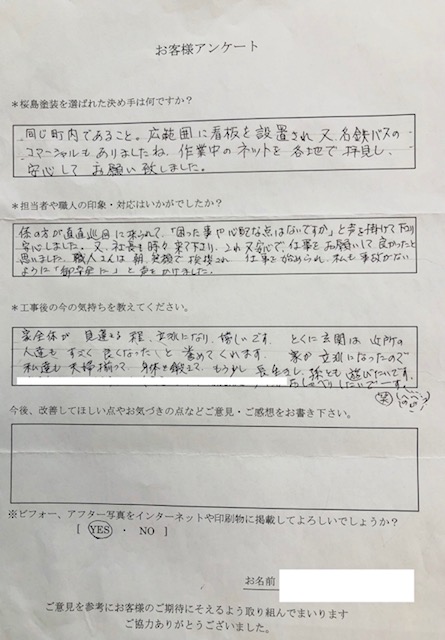 お客様アンケート
*桜島塗装を選ばれた決め手は何ですか?
同じ町内であること。広範囲に看板を設置され又名鉄バスの
コマーシャルもありましたね、作業中のネットを各地で拝見し、
安心してお願い致しました。
*担当者や職人の印象・対応はいかがでしたか?
係の方が直直巡回に来られて、「困った事や心配な点はないですか」と声を掛けて下さり
安心しました。又、社長も時々来て下さり、これ又安心で、仕事をお願いして良かったと
思いました。職人さんは朝、笑顔で挨拶され、仕事を始められ、私も事故がない
ように「御安全に」と声をかけました。
*工事後の今の気持ちを教えてください。
家全体が見違える程、立派になり、嬉しいです。とくに玄関は近所の
人達もすごく良くなったと誉めてくれます。家が立派になったので
私達も夫婦揃って、身体を鍛えて、もう少し長生きし、孫とも遊びたいです。
おしゃべりしたいでーす。
笑
今後、改善してほしい点やお気づきの点などご意見・ご感想をお書き下さい。
※ビフォー、アフター写真をインターネットや印刷物に掲載してよろしいでしょうか?
[ YES ・ NO ]
お名前
ご意見を参考にお客様のご期待にそえるよう取り組んでまいります
ご協力ありがとうございました。